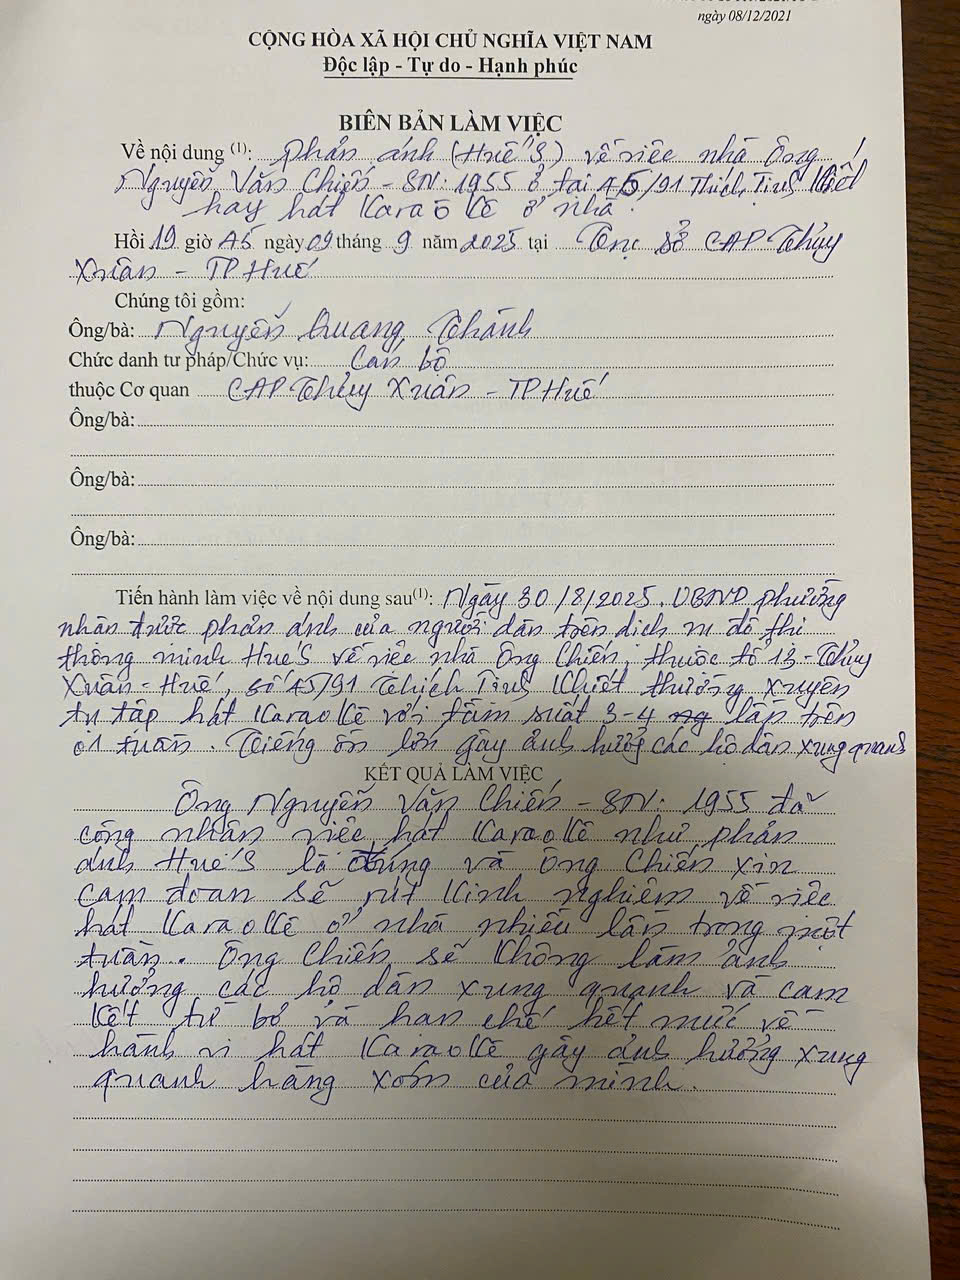 ngày 08/12/2021
CỘNG HÒA XÃ HỘI CHỦ NGHĨA VIỆT NAM
Độc lập - Tự do - Hạnh phúc
BIÊN BẢN LÀM VIỆC
Về nội dung (1): phản ánh (Huế S) về việc nhà Ông
Nguyễn Văn Chiến - SN: 1955 ở tại 45/91 Thích Tịnh Khiết
hay hát KaraoKê ở nhà.
Hồi 19 giờ 45 ngày 09 tháng 9 năm 2025 tại Trụ sở CAP Thủy
Xuân - TP Huế
Chúng tôi gồm:
Ông/bà: Nguyễn Quang Thành
Chức danh tư pháp/Chức vụ: Cán bộ
thuộc Cơ quan CAP Thủy Xuân - TP Huế
Ông/bà:
Ông/bà:
Ông/bà:
Tiến hành làm việc về nội dung sau(1): Ngày 30/8/2025. UBND phường
nhận được phản ánh của người dân trên dịch vụ đô thị
thông minh Huế S về việc nhà Ông Chiến, thuộc tổ 13 - Thủy
Xuân - Huế, số 45/91 Thích Tịnh Khiết thường xuyên
tụ tập hát KaraoKê với tầm suất 3-4 lần trên
01 tuần. Tiếng ồn lớn gây ảnh hưởng các hộ dân xung quanh
KẾT QUẢ LÀM VIỆC
Ông Nguyễn Văn Chiến - SN: 1955 đã
công nhận việc hát KaraoKê như phản
ánh Huế S là đúng và Ông Chiến xin
cam đoan sẽ rút Kinh nghiệm về việc
hát KaraoKê ở nhà nhiều lần trong một
tuần. Ông Chiến sẽ Không làm ảnh
hưởng các hộ dân xung quanh và cam
Kết từ bỏ và hạn chế hết mức về
hành vi hát KaraoKê gây ảnh hưởng xung
quanh hàng xóm của mình.